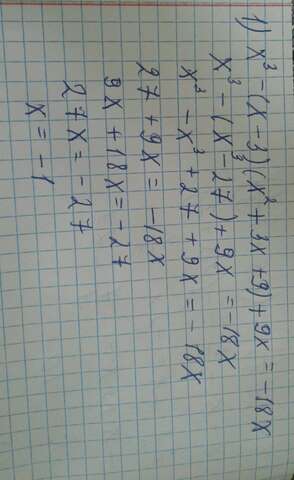 1) x³ - (x - 3)(x² + 3x + 9) + 9x = -18x
x³ - (x³ - 27) + 9x = -18x
x³ - x³ + 27 + 9x = -18x
27 + 9x = -18x
9x + 18x = -27
27x = -27
x = -1